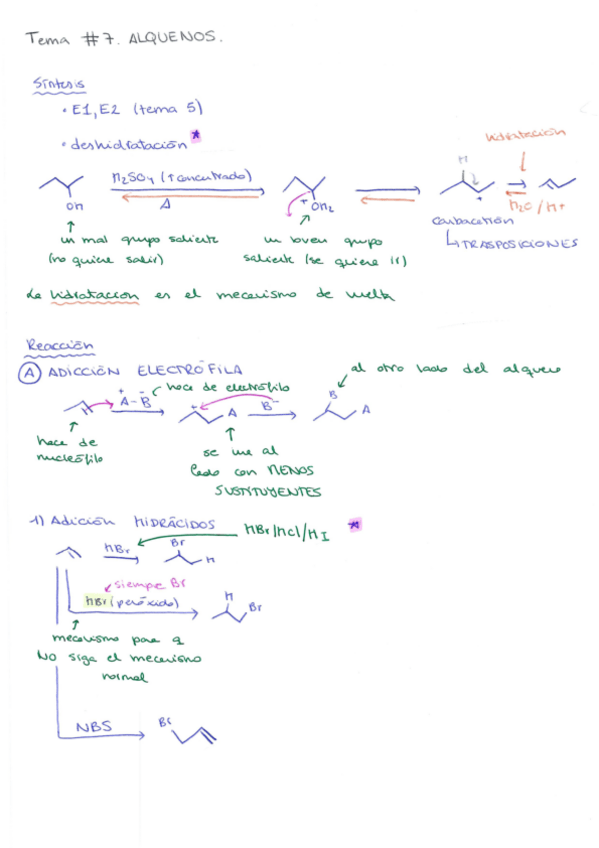 Tema #7. ALQUENOS.
Síntesis
• E1, E2 (tema 5)
• deshidratación *
hidratación
H₂SO₄ (↑ concentrado)
Δ
OH
+OH₂
H
+
H₂O/H+
un mal grupo saliente
(no quiere salir)
un buen grupo
saliente (se quiere ir)
Carbocatión
↳ TRASPOSICIONES
La hidratación es el mecanismo de vuelta
Reacción
(A) ADICCIÓN ELECTRÓFILA
al otro lado del alqueno
+ -
A-B
hace de electrófilo
+
A
B⁻
B
A
hace de
nucleófilo
se une al
lado con MENOS
SUSTITUYENTES
1) Adición HIDRÁCIDOS
HBr/HCl/HI *
HBr
Br
H
siempre Br
HBr (peróxido)
H
Br
mecanismo para q
NO siga el mecanismo
normal
NBS
Br